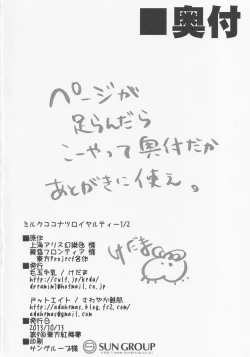 ■奥付
ページが
足らんだら
こーやって奥付だか
あとがきに使え。
けだま
ミルクココナツロイヤルティー1/2
■原作
上海アリス幻樂団 様
黄昏フロンティア 様
東方Project各作
■発行
毛玉牛乳 / けだま
ドットエイト / さわやか鮫肌
■発行日
2013/10/13
第9回東方紅楼夢
■印刷
サングループ様
SUN GROUP